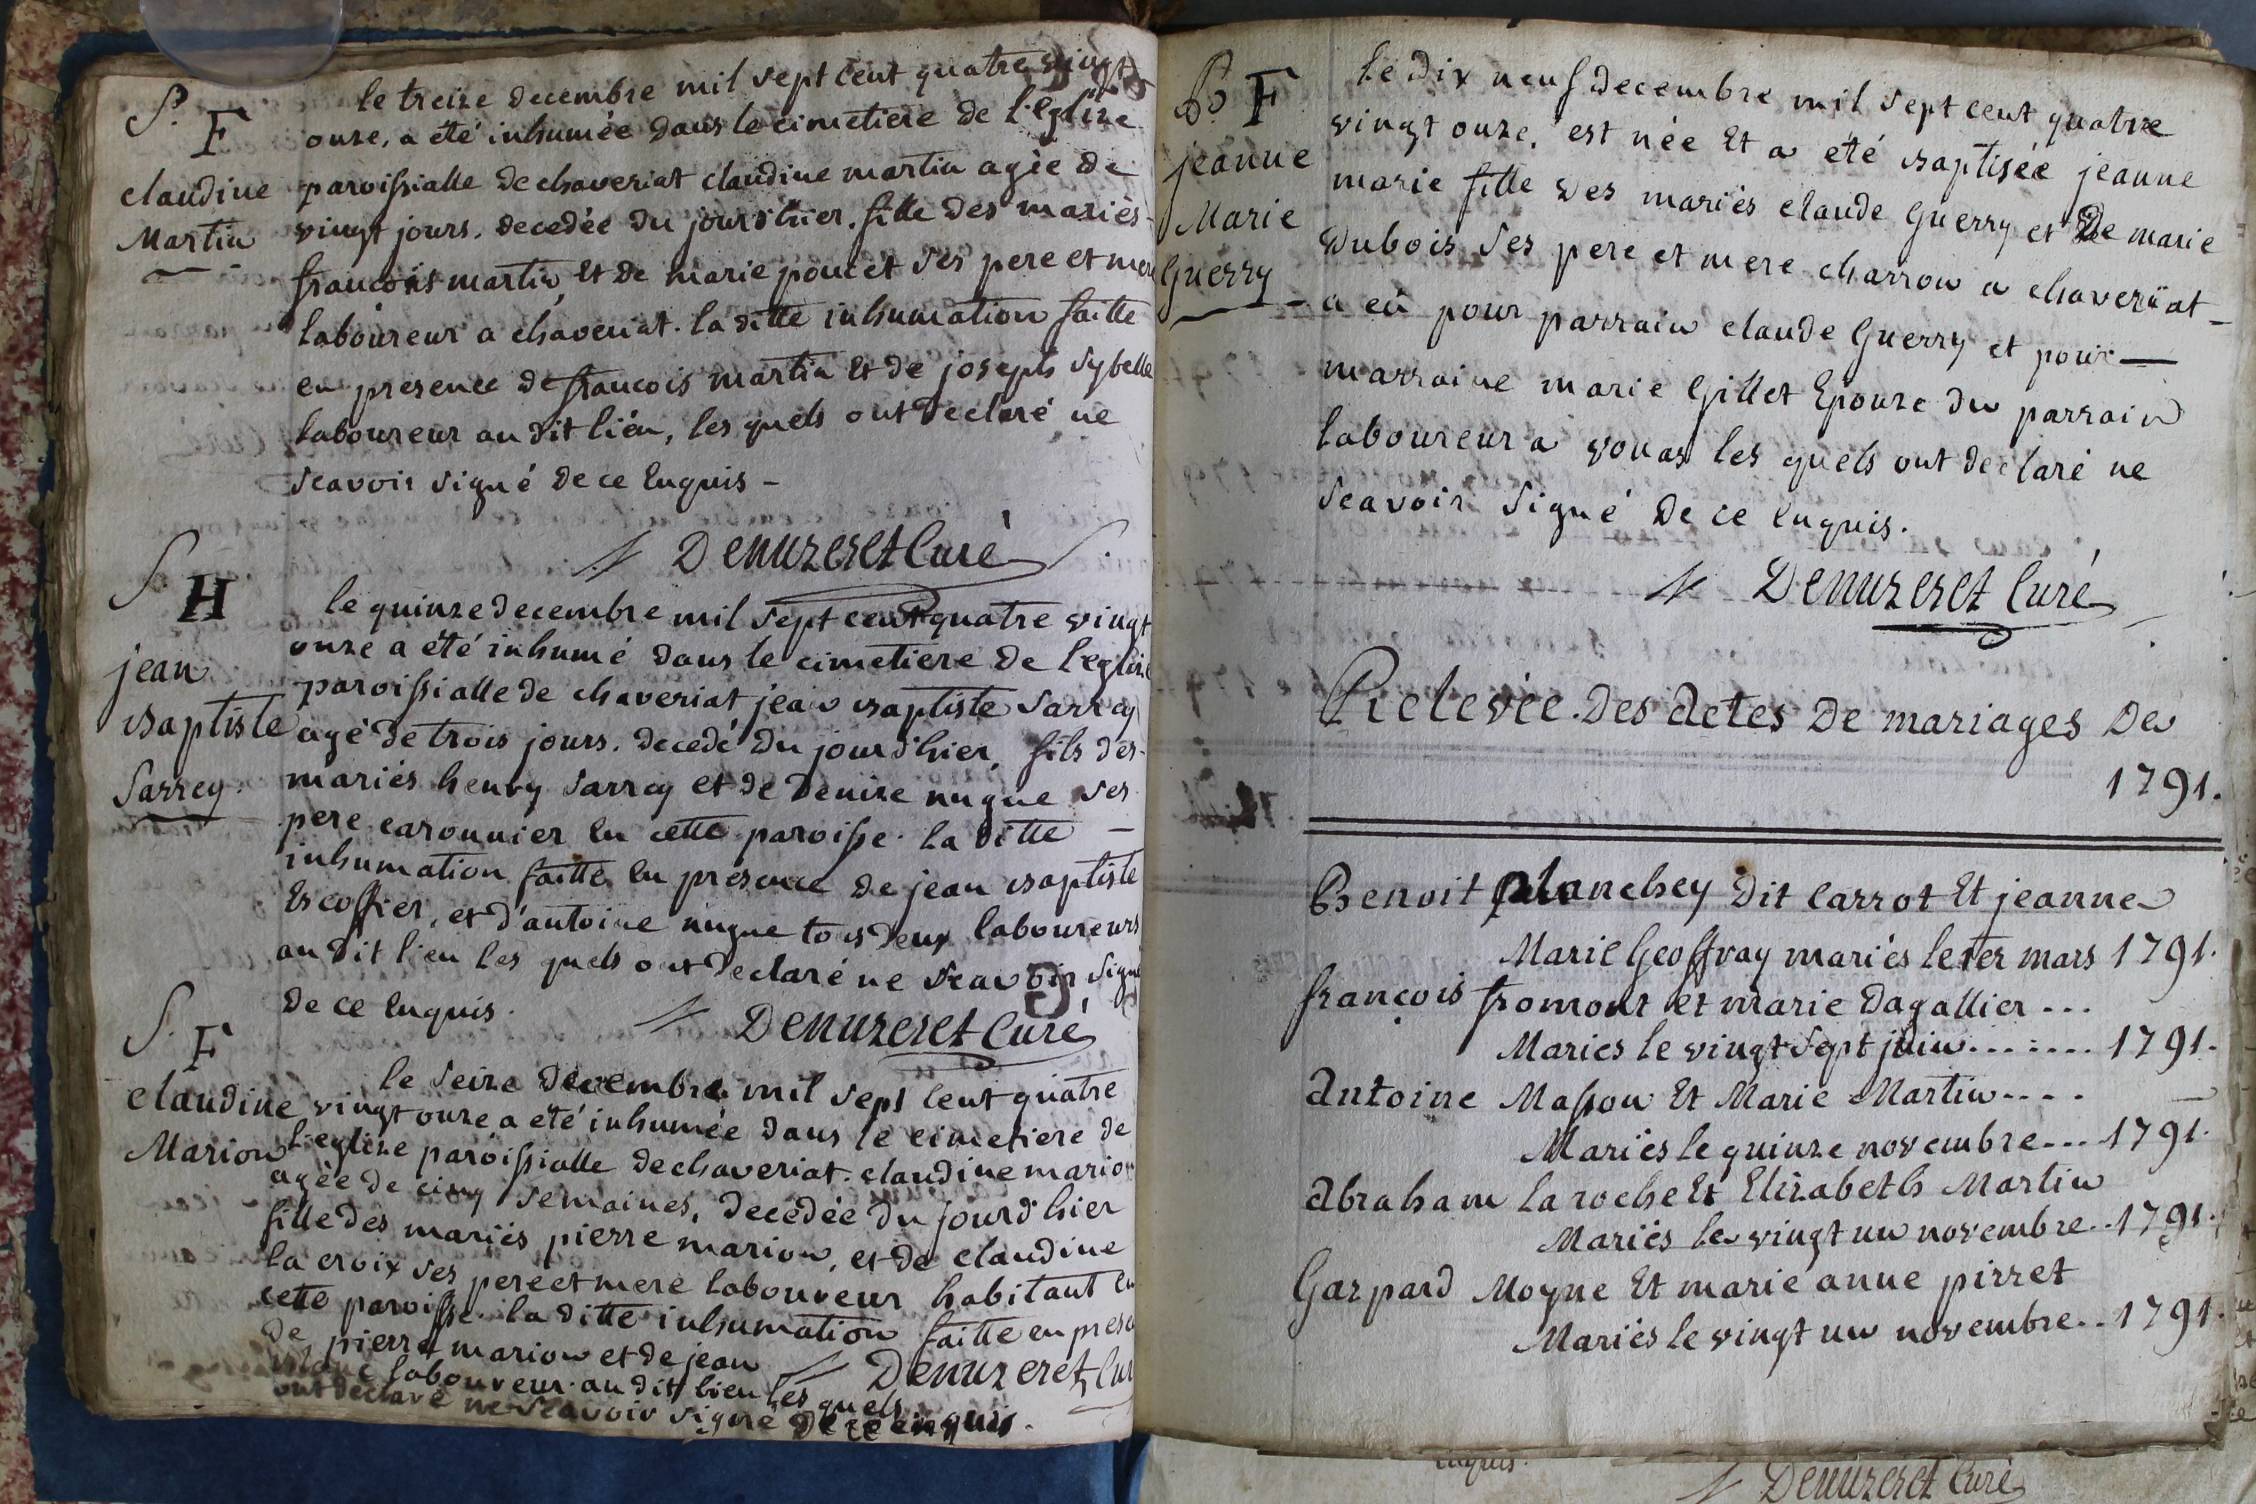 S. F
claudine
Martin
le treize decembre mil sept cent quatre vingt
onze, a été inhumée dans le cimetiere de l'eglize
paroissialle de chaveriat claudine martin agèe de
vingt jours. decedée du jour d'hier. fille des mariès
francois martin et de marie poncet ses pere et mere
laboureur a chaveriat. la ditte inhumation faitte
en presence de francois martin et de joseph sybelle
laboureur au dit liéu, les quels ont declaré ne
scavoir signé de ce enquis -
Denuzeret Curé
S. H
jean
baptiste
Sarrey.
le quinze decembre mil sept cent quatre vingt
onze a été inhumé dans le cimetiere de l'eglize
paroissialle de chaveriat jean baptiste Sarrey
agé de trois jours. decedé du jour d'hier, fils des
mariés henry Sarrey et de Denize nugue ses
pere caronnier en cette paroisse. la ditte
inhumation faitte en présence de jean baptiste
Escoffier, et d'antoine nugue tous deux laboureurs
au dit lieu les quels ont declaré ne scavoir signé
de ce enquis.
Denuzeret Curé
S. F
claudine
Marion
le seize decembre mil sept cent quatre
vingt onze a été inhumée dans le cimetiere de
l'eglize paroissialle de chaveriat. claudine marion
agée de cinq semaines, decedée du jour d'hier
fille des mariés pierre marion, et de claudine
la croix ses pere et mere laboureur habitant en
cette paroisse. la ditte inhumation faitte en prese
de pierre marion et de jean
laboureur au dit lieu les quels
ont declaré ne scavoir signé de ce enquis.
Denuzeret Cur
B. F
jeanne
Marie
Guerry
le dix neuf decembre mil sept cent quatre
vingt onze, est née et a été baptisée jeanne
marie fille des mariés claude Guerry et De marie
Dubois ses pere et mere charron a chaveriat
a eû pour parrain claude Guerry et pour
marraine marie Gillet Epouze du parrain
laboureur a vonas les quels ont declaré ne
scavoir signé de ce enquis.
Denuzeret Curé
Relevée. Des actes De mariages De
1791.
Benoit planchey dit Carrot Et jeanne
Marie Geoffray mariés le 1er mars 1791.
françois fromont et marie Dagallier ...
Maries le vingt sept juin....... 1791.
Antoine Masson Et Marie Martin....
Mariés le quinze novembre... 1791.
Abraham la roche Et Elizabeth Martin
Mariés le vingt un novembre.. 1791.
Gaspard Moyne Et marie anne pirret
Mariés le vingt un novembre.. 1791.
enquis.
Denuzeret Curé